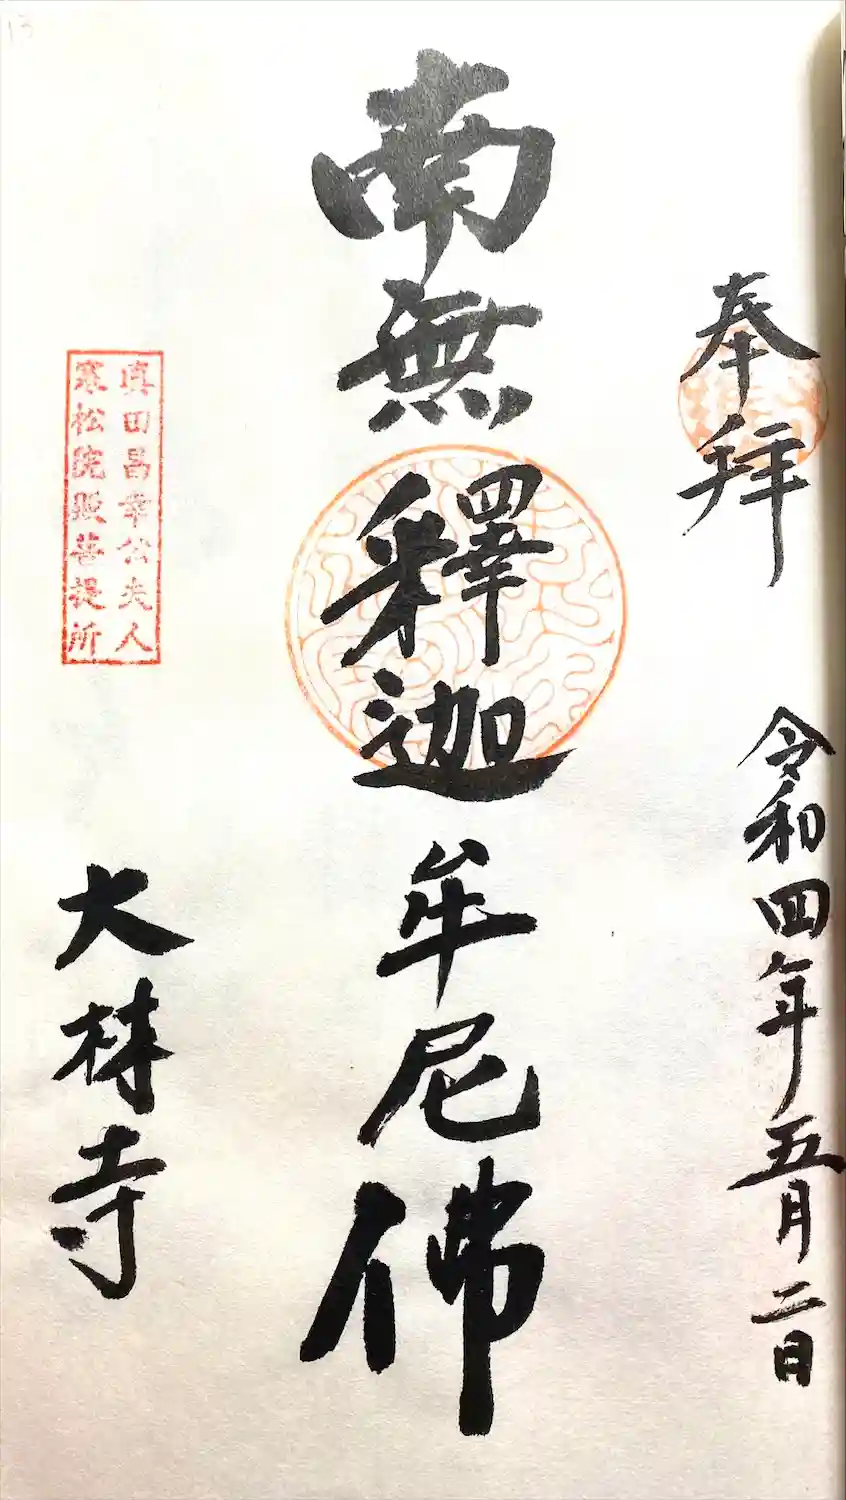 奉拝
令和四年五月二日
南無釋迦牟尼佛
眞田昌幸公夫人
寒松院殿菩提所
大林寺
13